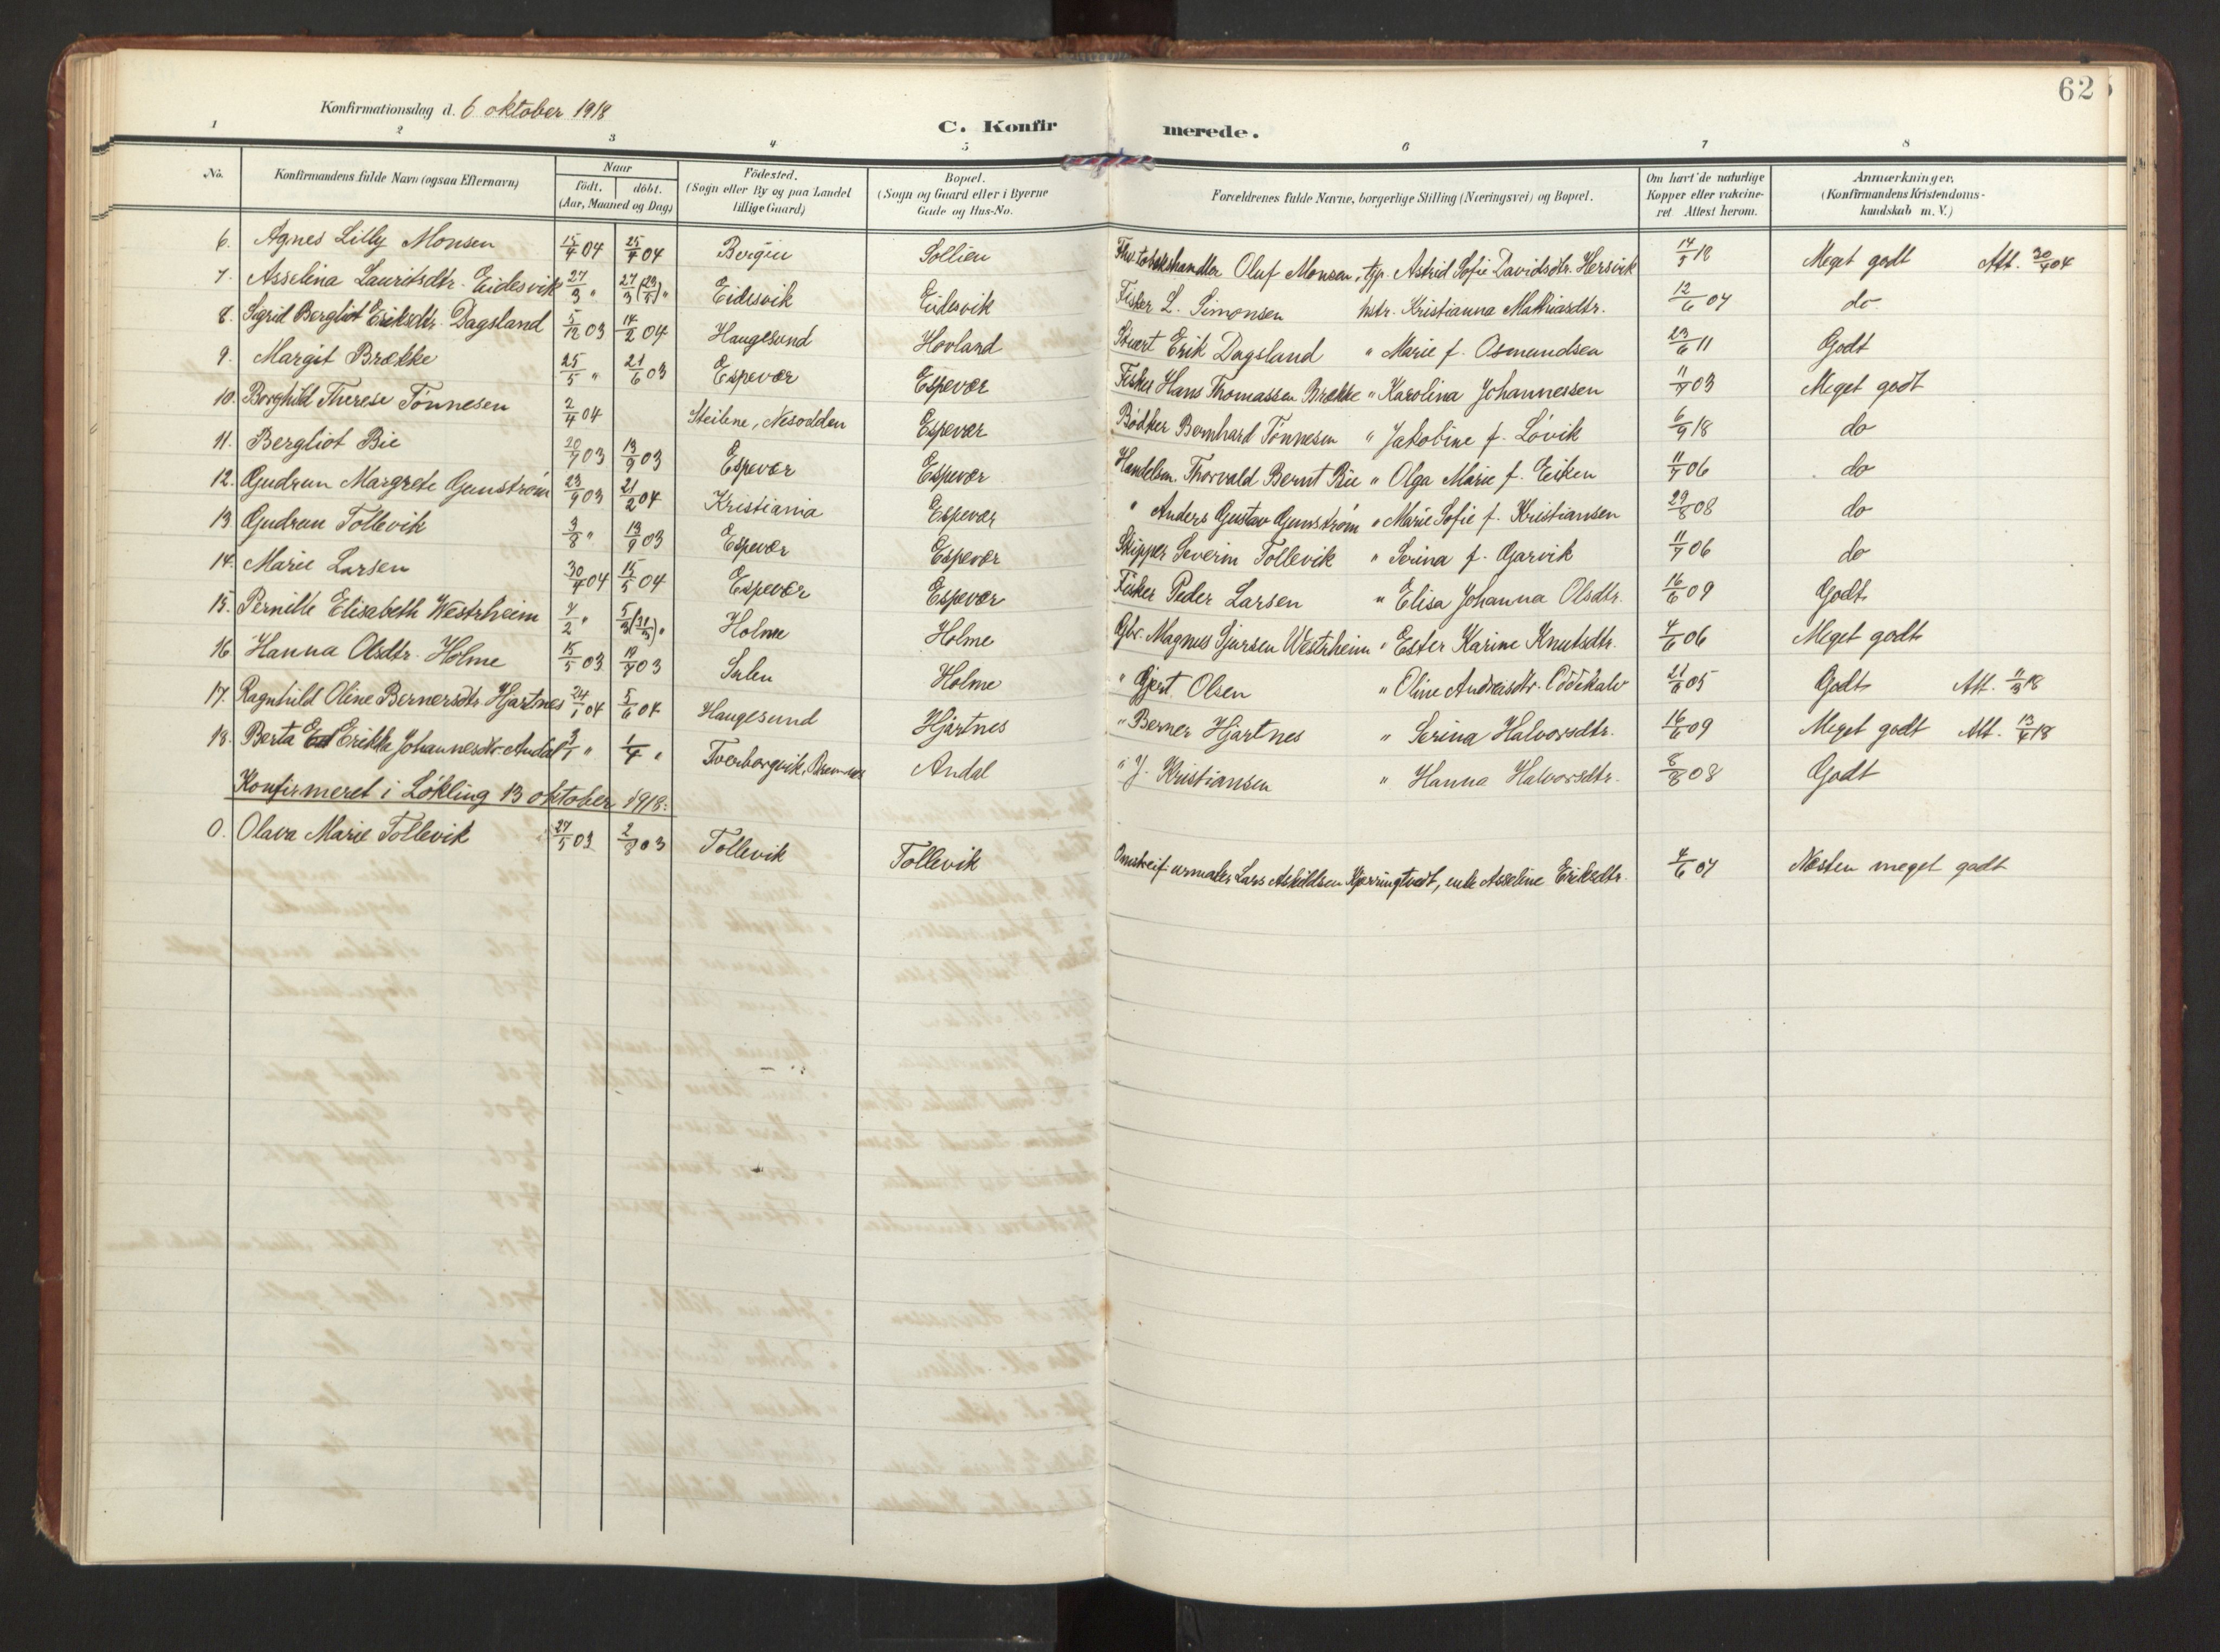 62
Konfirmationsdag d. 6 oktober 1918
C. Konfirmerede.
1 2 3 4 5 6 7 8
No. Konfirmandens fulde Navn (ogsaa Efternavn) Naar født. døbt. (Aar, Maaned og Dag) Födested. (Sogn eller By og paa Landet tillige Gaard) Bopæl. (Sogn og Gaard eller i Byerne Gade og Hus-No. Forældrenes fulde Navne, borgerlige Stilling (Næringsvei) og Bopæl. Om havt de naturlige Kopper eller vakcineret Attest herom. Anmærkninger, (Konfirmandens Kristendomskundskab m. V.)
6. Agnes Lilly Monsen 15/4 04 25/4 04 Bergen Sollien Oluf Monsen, Astrid Sofie Davidsdtr. Hersvik 14/5 18 Meget godt Att. 30/4 04
7. Asselina Lauritsdtr. Eidesvik 27/3 " 27/3 (23/5) " Eidesvik Eidesvik Fisker L. Simonsen hstr. Kristianna Mathiasdtr. 12/6 07 do
8. Sigrid Bergliot Eriksdtr. Dagsland 5/12 03 14/2 04 Haugesund Hovland Stuert Erik Dagsland " Marie f. Osmundsen 23/6 11 Godt
9. Margit Brække 25/5 " 21/6 03 Espevær Espevær Fisker Hans Thomassen Brække " Karolina Johannessen 11/7 03 Meget godt
10. Borghild Therese Tönnesen 2/4 04 Steilene, Nesodden Espevær Bødker Bernhard Tönnesen " Jakobine f. Lövik 6/9 18 do
11. Bergliot Bie 20/7 03 13/9 03 Espevær Espevær Handelsm. Thorvald Bernt Bie " Olga Marie f. Eiken 11/7 06 do
12. Gudrun Margrete Gunström 23/9 03 21/2 04 Kristiania Espevær " Anders Gustav Gunström " Marie Sofie f. Kristiansen 29/8 08 do
13. Gudrun Tollevik 3/8 " 13/9 03 Espevær Espevær Skipper Severin Tollevik " Serina f. Gjarvik 11/7 06 do
14. Marie Larsen 30/4 04 15/5 04 Espevær Espevær Fisker Peder Larsen " Elisa Johanna Olsdtr. 16/6 09 Godt
15. Pernille Elisabeth Westrheim 7/2 " 5/3 (31/3) " Holme Holme Gbr. Magnus Sjursen Westrheim " Ester Karine Knutsdtr. 4/6 06 Meget godt
16 Hanna Olsdtr. Holme 15/5 03 19/7 03 Sælen Holme " Gjert Olsen " Oline Andreasdtr. 21/6 05 Godt Att. 11/3 18
17. Ragnhild Oline Bernersdtr. Hjartnes 24/1 04 5/6 04 Haugesund Hjartnes " Berner Hjartnes " Serina Halvorsdtr. 16/6 09 Meget godt Att. 13/4 18
18. Berta Erikka Johannesdtr. Andal 3/1 " 1/4 " Andal " J. Kristiansen " Hanna Halvorsdtr. 8/8 08 Godt
Konfirmeret i Lökling 13 oktober 1918:
0. Olava Marie Tollevik 27/5 03 2/8 03 Tollevik Tollevik Lars Askildsen Kjerringtvedt, enke Asseline Eriksdtr. 4/6 07 Næsten meget godt